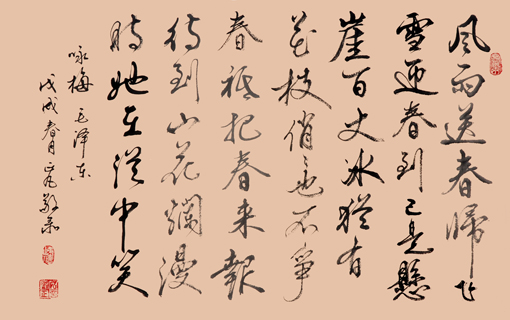 风雨送春歸飞
雪迎春到已是懸
崖百丈冰猶有
花枝俏〻也不爭
春祗把春来報
待到山花爛漫
時她在從中笑
咏梅 毛泽东
戊戌春月